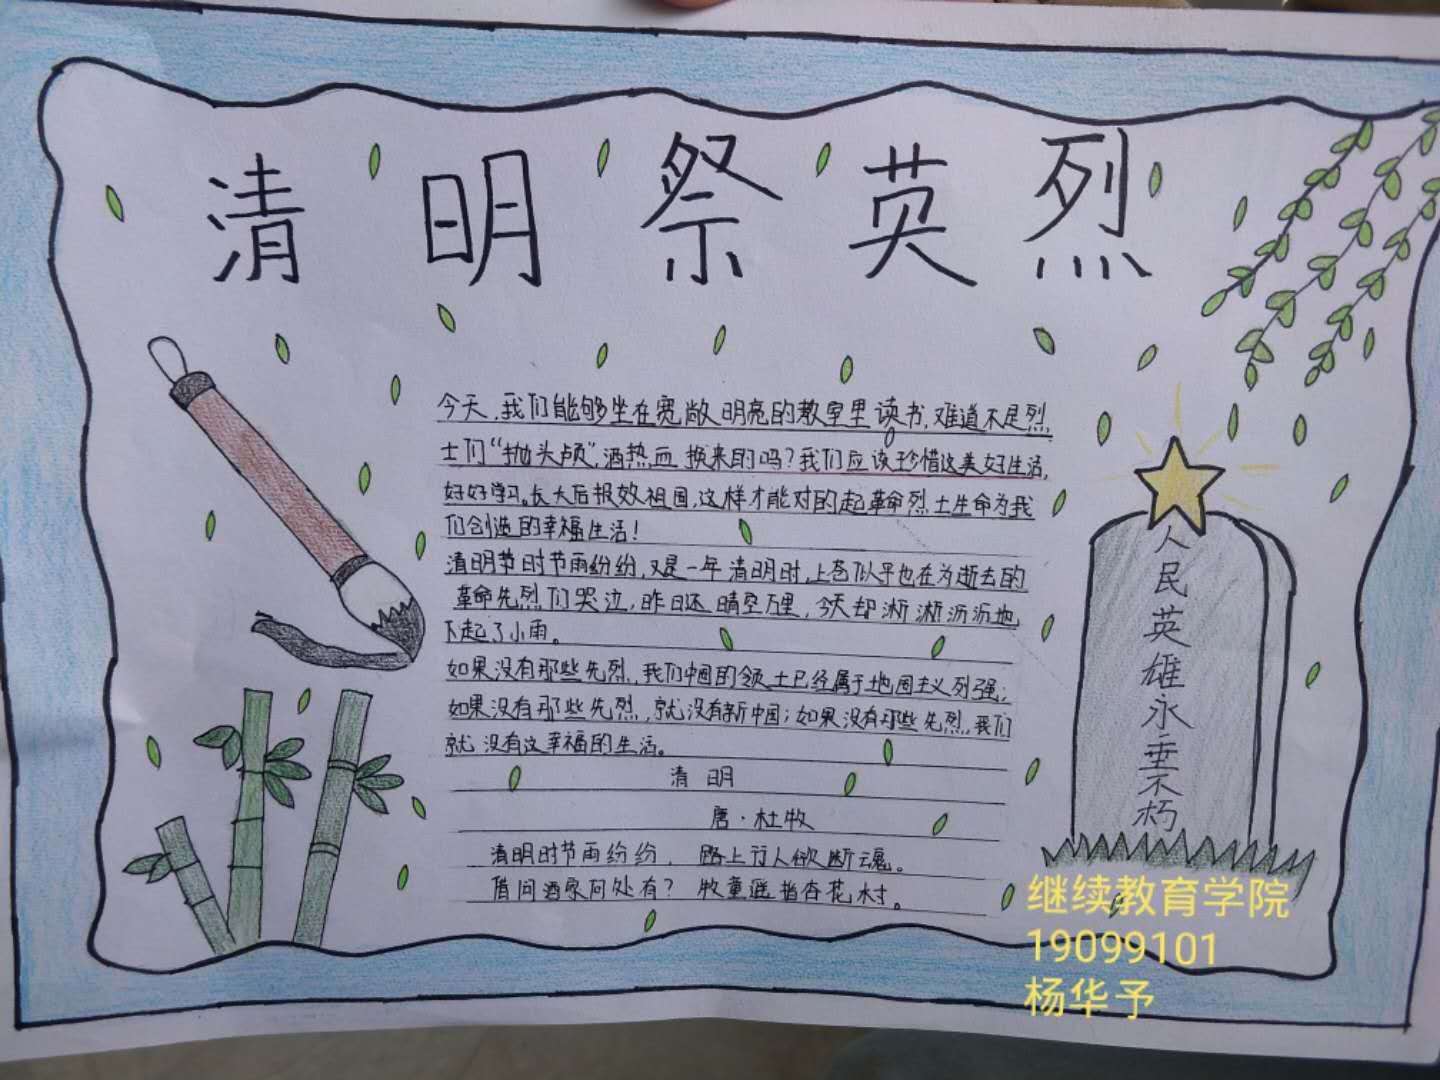 清明祭英烈
今天,我们能够坐在宽敞明亮的教室里读书,难道不是烈
士们“抛头颅”,洒热血换来的吗?我们应该珍惜这美好生活,
好好学习。长大后报效祖国,这样才能对的起革命烈士生命为我
们创造的幸福生活!
清明节时节雨纷纷,又是一年清明时,上苍似乎也在为逝去的
革命先烈们哭泣,昨日还晴空万里,今天却淅淅沥沥地
下起了小雨。
如果没有那些先烈,我们中国的领土已经属于地国主义列强;
如果没有那些先烈,就没有新中国;如果没有那些先烈,我们
就没有这幸福的生活。
清明
唐·杜牧
清明时节雨纷纷,路上行人欲断魂。
借问酒家何处有?牧童遥指杏花村。
人民英雄永垂不朽
继续教育学院
19099101
杨华予